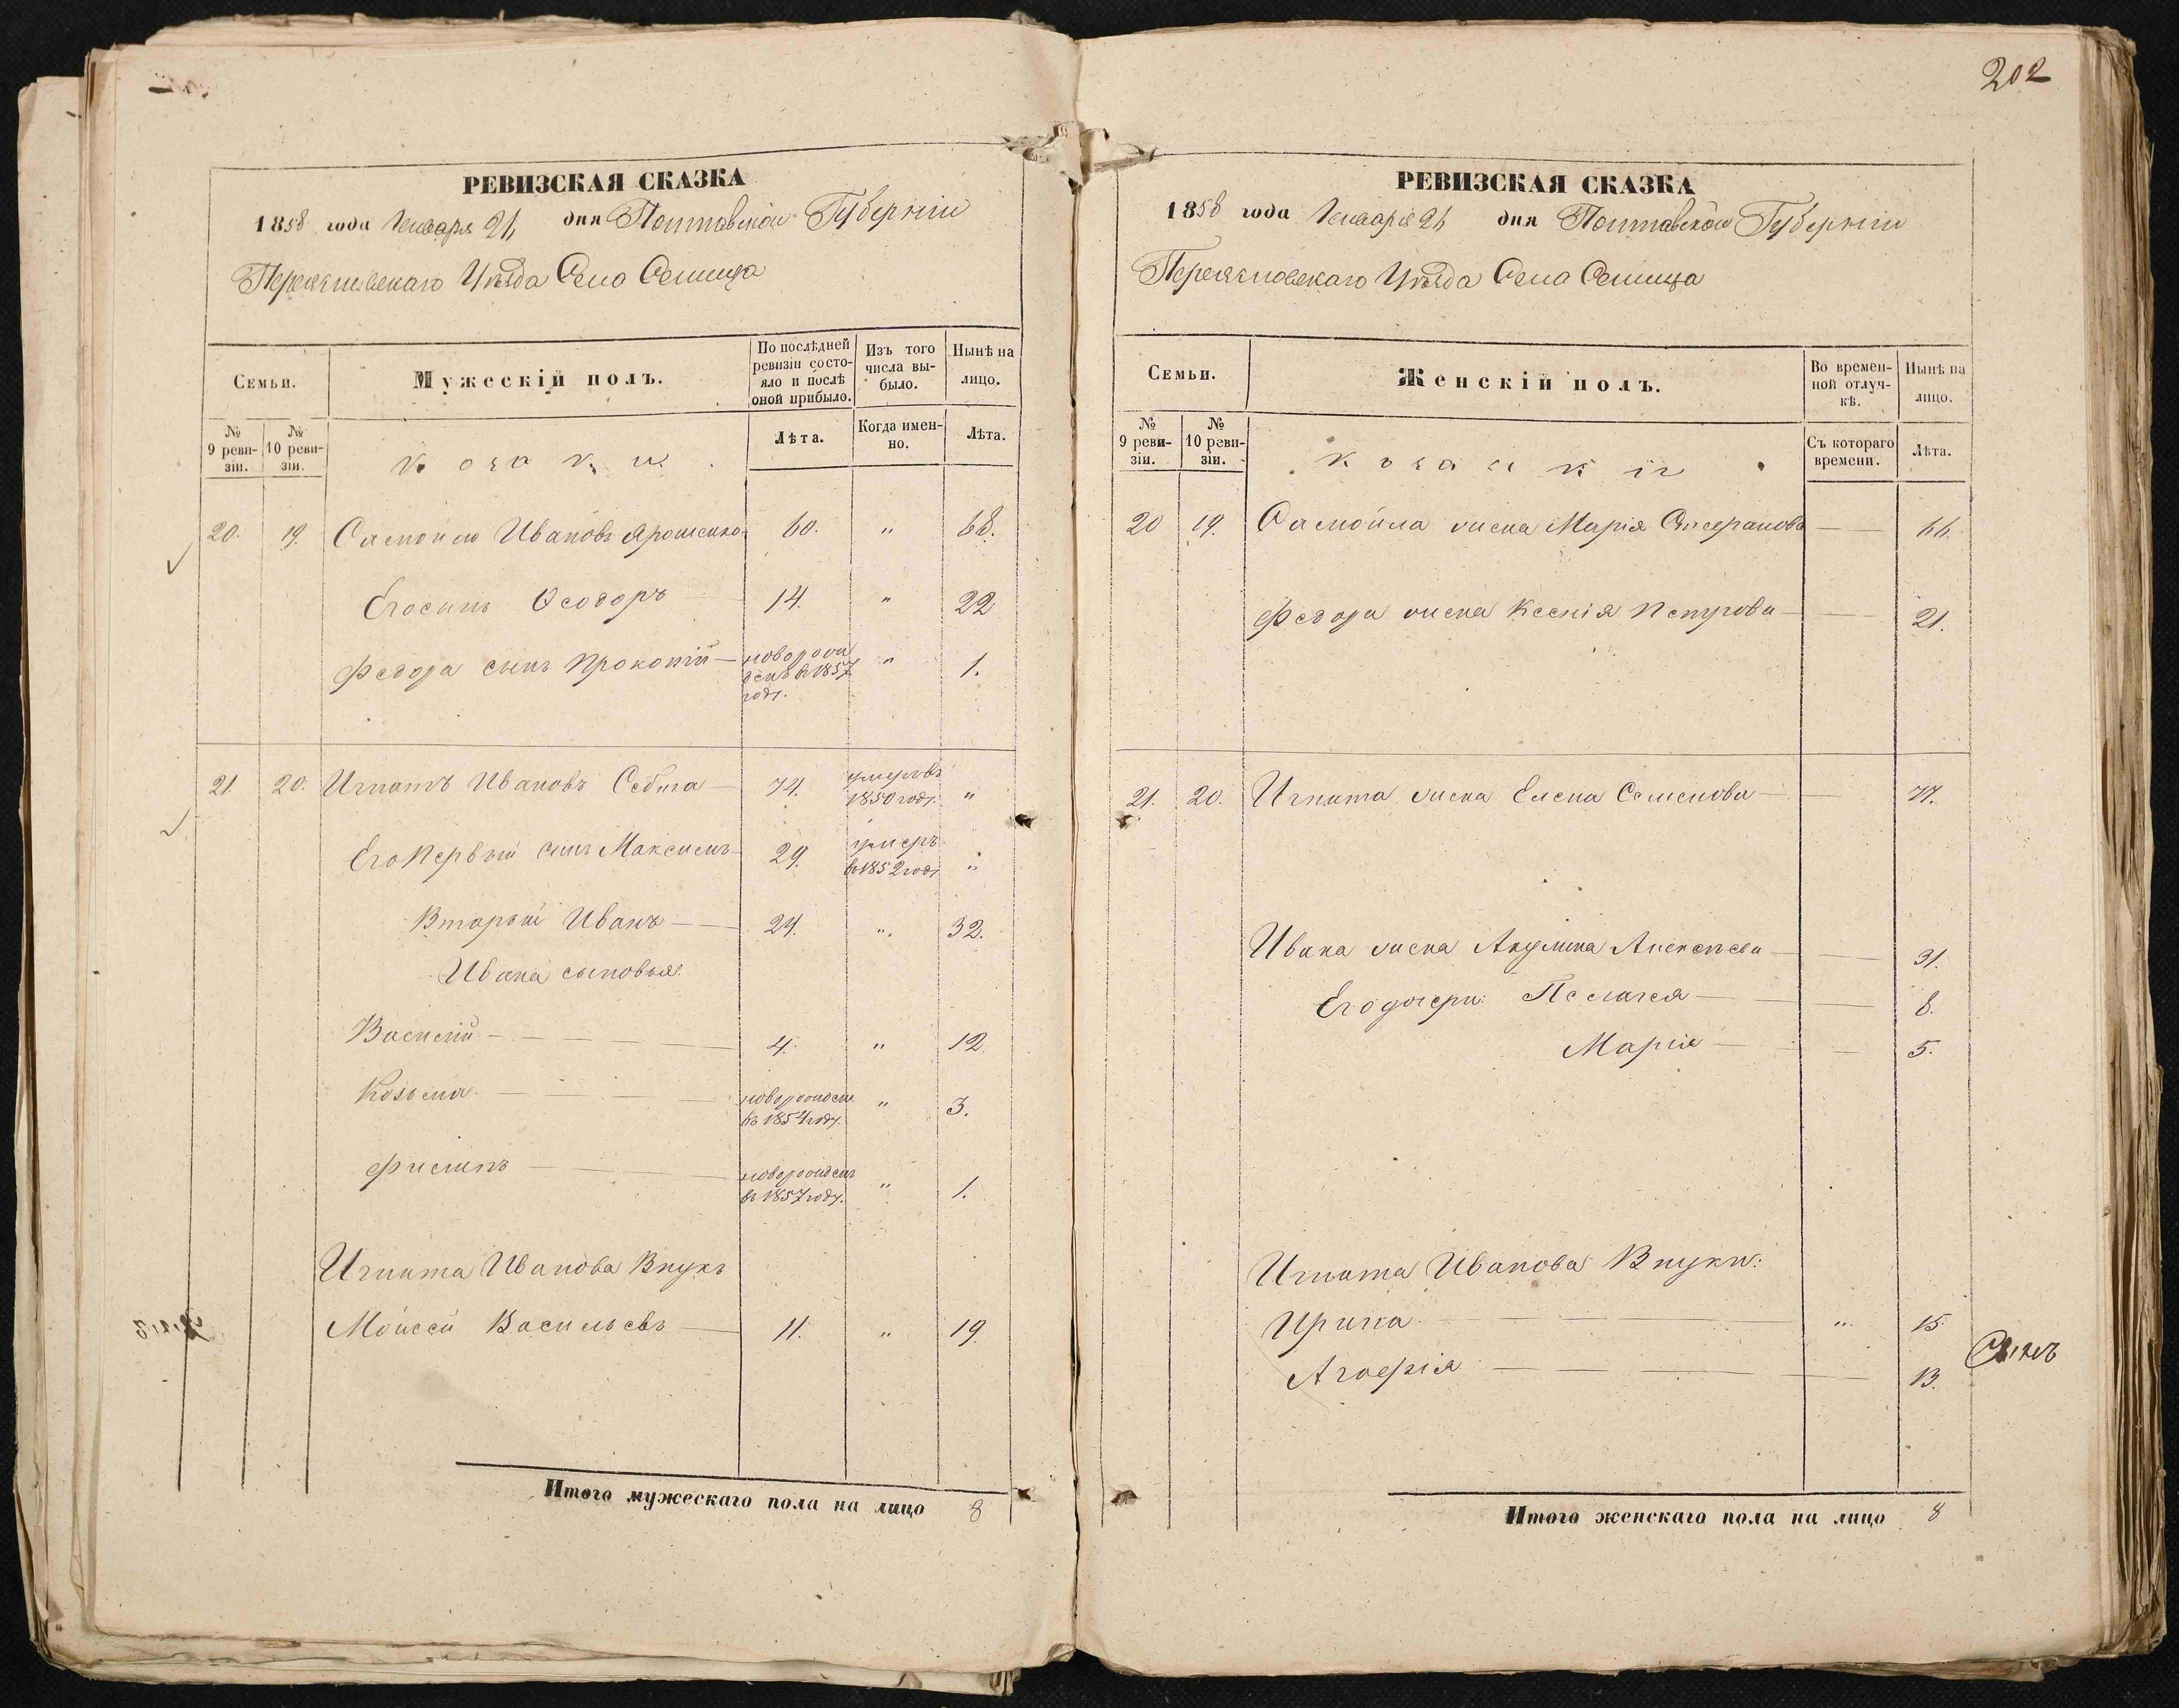 202
РЕВИЗСКАЯ СКАЗКА
1858 года Января 21 дня Полтавской Губерніи
Переяславскаго Уѣзда Село Сошица
Семьи.
Мужескій полъ.
По послѣдней ревизіи состояло и послѣ оной прибыло.
Изъ того числа выбыло.
Нынѣ на лицо.
№ 9 ревизіи.
№ 10 ревизіи.
козаки.
Лѣта.
Когда именно.
Лѣта.
20. 19. Самойло Ивановъ Ярошенко 60. " 68.
Его сынъ Ѳеодоръ 14. " 22
Федора сынъ Прокопій — новорожденъ въ 1857 году. " 1.
21 20. Игнатъ Ивановъ Себта — 74. умеръ въ 1850 году. "
Его Первый сынъ Максимъ 29. умеръ въ 1852 году "
Вторый Иванъ — 24. ". 32.
Ивана сыновья:
Василій — 4. " 12
Козьма — новорожден въ 1854 году. " 3.
Филипъ — новорожденъ въ 1857 году. " 1.
Игната Иванова Внукъ
Мойсей Васильевъ — 11. " 19.
Итого мужескаго пола на лицо 8
РЕВИЗСКАЯ СКАЗКА
1858 года Января 21 дня Полтавской Губерніи
Переясловскаго Уѣзда Село Сошица
Семьи.
Женскій полъ.
Во временной отлучкѣ.
Нынѣ на лицо.
№ 9 ревизіи.
№ 10 ревизіи.
козачки.
Съ котораго времени.
Лѣта.
20 19. Самойла жена Марія Стефанова — 66.
Федора жена Ксенія Петрова — 21.
21. 20. Игната жена Елена Семенова — 77.
Ивана жена Акулина Алексѣева — 31.
Его дочери: Пелагея — 8.
Марія — 5.
Игната Иванова Внуки:
Ирина — " 15.
Агафія — 13.
Итого женскаго пола на лицо 8